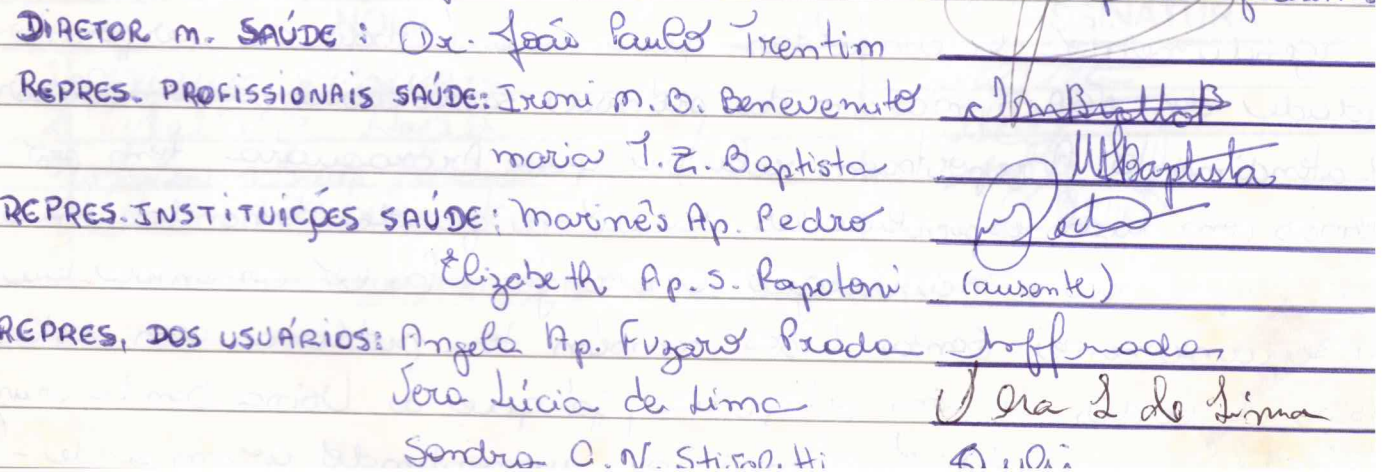 DIRETOR M. SAÚDE: Dr. João Paulo Trentim
REPRES. PROFISSIONAIS SAÚDE: Ironi M. B. Benevenuto
Maria T. Z. Baptista MTBaptista
REPRES. INSTITUIÇÕES SAÚDE: Marinês Ap. Pedro
Elizabeth Ap. S. Rapotoni (ausente)
REPRES. DOS USUÁRIOS: Angela Ap. Fuzaro Prada
Vera Lúcia de Lima Vera L de Lima
Sandra C. N.